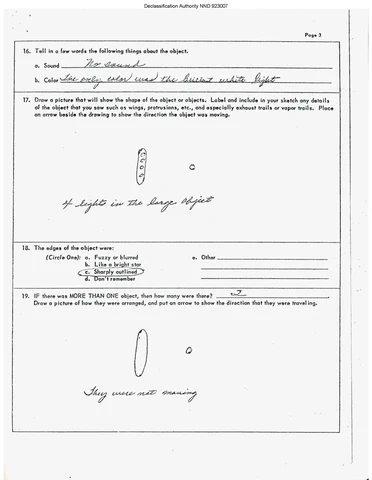 Declassification Authority NND 923007
Page 3
16. Tell in a few words the following things about the object.
a. Sound No sound
b. Color The only color was the brilliant white light
17. Draw a picture that will show the shape of the object or objects. Label and include in your sketch any details
of the object that you saw such as wings, protrusions, etc., and especially exhaust trails or vapor trails. Place
an arrow beside the drawing to show the direction the object was moving.
4 lights in the large object
18. The edges of the object were:
(Circle One): a. Fuzzy or blurred
b. Like a bright star
c. Sharply outlined
d. Don't remember
e. Other
19. IF there was MORE THAN ONE object, then how many were there? 2
Draw a picture of how they were arranged, and put an arrow to show the direction that they were traveling.
They were not moving